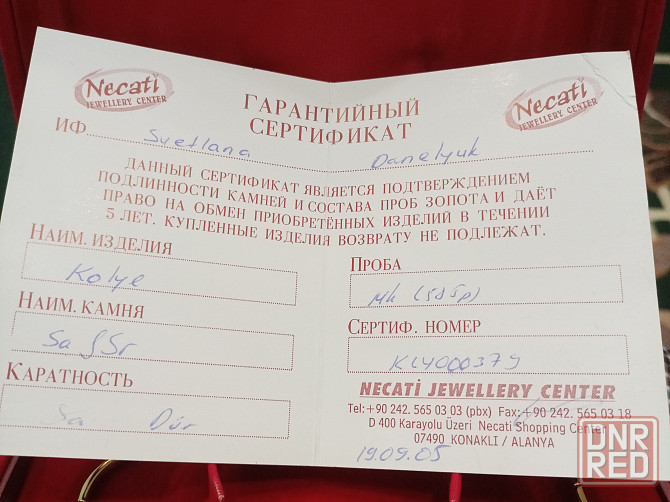 Necati
JEWELLERY CENTER
Necati
JEWELLERY CENTER
ГАРАНТИЙНЫЙ
СЕРТИФИКАТ
ИФ Svetlana Danelyuk
ДАННЫЙ СЕРТИФИКАТ ЯВЛЯЕТСЯ ПОДТВЕРЖДЕНИЕМ
ПОДЛИННОСТИ КАМНЕЙ И СОСТАВА ПРОБ ЗОПОТА И ДАЁТ
ПРАВО НА ОБМЕН ПРИОБРЕТЁННЫХ ИЗДЕЛИЙ В ТЕЧЕНИИ
5 ЛЕТ. КУПЛЕННЫЕ ИЗДЕЛИЯ ВОЗВРАТУ НЕ ПОДЛЕЖАТ.
НАИМ. ИЗДЕЛИЯ
Kolye
НАИМ. КАМНЯ
КАРАТНОСТЬ
ПРОБА
(585p)
СЕРТИФ. НОМЕР
NECATİ JEWELLERY CENTER
Tel:+90 242. 565 03 03 (pbx) Fax:+90 242. 565 03 18
D 400 Karayolu Üzeri Necati Shopping Center
07490 KONAKLI / ALANYA
19.09.05
DNR
RED